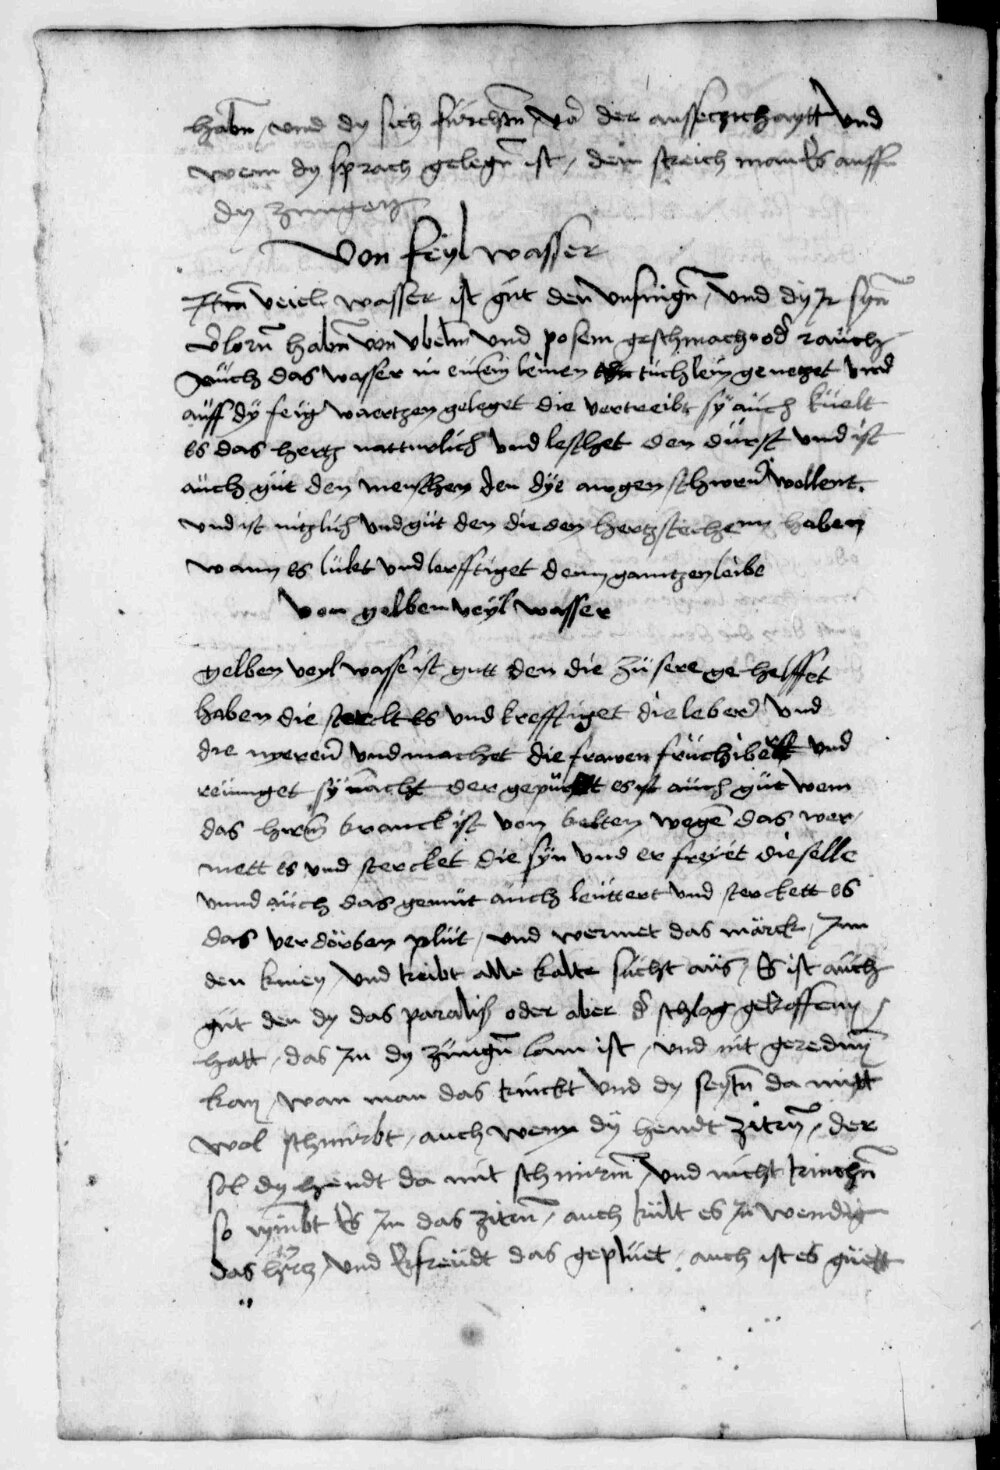 habn̄ / und dy sich fürchtn̄ / vo᷑ der aussecʒichaytt und
wem dy sprach gelegn̄ ist / dem streich man Es auff
dy zungen
Von feyl wasser
Itm̄ veiel wasser ist güt den unsinign̄ / Und dÿ Ir syn̄
v᷑lorn̄ habn̄ von ubelm̄ und posem geschmach od᷑ rauch
Auch das wasser in einem leinen tüchlein genetzet und
auff dÿ feig waertzen geleget die vertreibt sÿ auch küelt
es das hertz natturlich und leschet den dürst und ist
auch güt den menschen den dÿe augen schwern̄ wollent.
und ist nitzlich und güt den die den hertzstechenn haben
wann es lükt und krefftiget denn gantzen leibe
Von gelben veÿl wasser
gelben veyl wasse ist gutt den die zü sere gehelffet
haben die sterckt es und krefftiget die leber᷑ und
die nyeren̄ und machet die frawen früchtber und
reiniget sÿ nacht der gepürtt es ist auch güt wem
das hirn̄ kranck ist von kelten wegen̄ das wer/
mett es und stercket die sÿn und erfreiet dieselle
unnd aüch das gemüt auch leüttert und sterckett es
das verdörben plüt / und wermet das märck / Inn
den knien / Und treibt alle kalte sücht aüs / Es ist auch
güt den dy das paralis oder aber d᷑ schlag getroffenn
hatt / das Im dy züngn̄ lam ist / und nit geredn̄
kan / wan man das trinckt Und dy seytn̄ da mitt
wol schmirbt / auch wenn dÿ hendt zitrn̄ / der
sol dy hendt da mit schmirn̄ / Und nicht trinckn̄
so nymbt Es Im das zitrn̄ / auch kült es In wendig
das hertz / Und Erfreüdt das geplüet / auch ist es güett